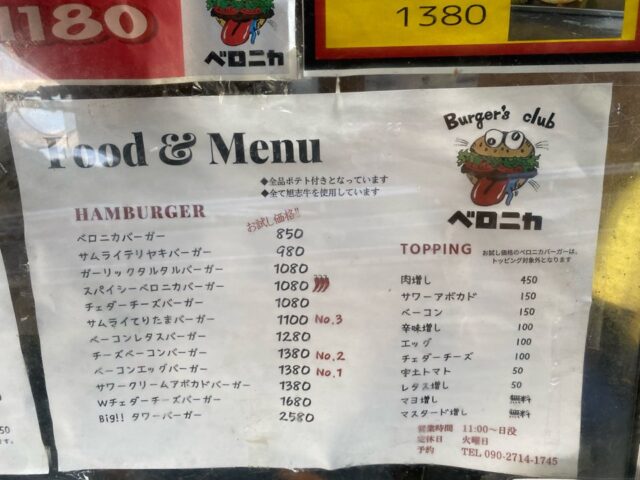 1180
ベロニカ
1380
Food & Menu
◆全品ポテト付きとなっています
◆全て旭志牛を使用しています
Burger's club
ベロニカ
HAMBURGER
お試し価格!!
ベロニカバーガー 850
サムライテリヤキバーガー 980
ガーリックタルタルバーガー 1080
スパイシーベロニカバーガー 1080
チェダーチーズバーガー 1080
サムライてりたまバーガー 1100 No.3
ベーコンレタスバーガー 1280
チーズベーコンバーガー 1380 No.2
ベーコンエッグバーガー 1380 No.1
サワークリームアボカドバーガー 1380
Wチェダーチーズバーガー 1680
Big!! タワーバーガー 2580
TOPPING
お試し価格のベロニカバーガーは、
トッピング対象外となります
肉増し 450
サワーアボカド 150
ベーコン 150
辛味増し 100
エッグ 100
チェダーチーズ 100
宇土トマト 50
レタス増し 50
マヨ増し 無料
マスタード増し 無料
営業時間 11:00〜日没
定休日 火曜日
予約 TEL 090-2714-1745